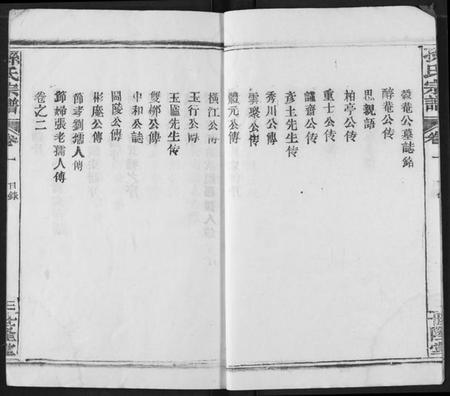 孫氏宗譜
卷一
穀菴公墓誌銘
醉菴公傳
思親語
柏亭公傳
重士公傳
謹齋公傳
彥士先生傳
秀川公傳
雲聚公傳
體元公傳
橫江公傳
玉行公傳
玉廬先生傳
雙鄉公傳
中和公誌
圖陵公傳
彬庵公傳
節孝劉孺人傳
節婦張老孺人傳
卷之二
孫氏宗譜
卷一
目錄
三